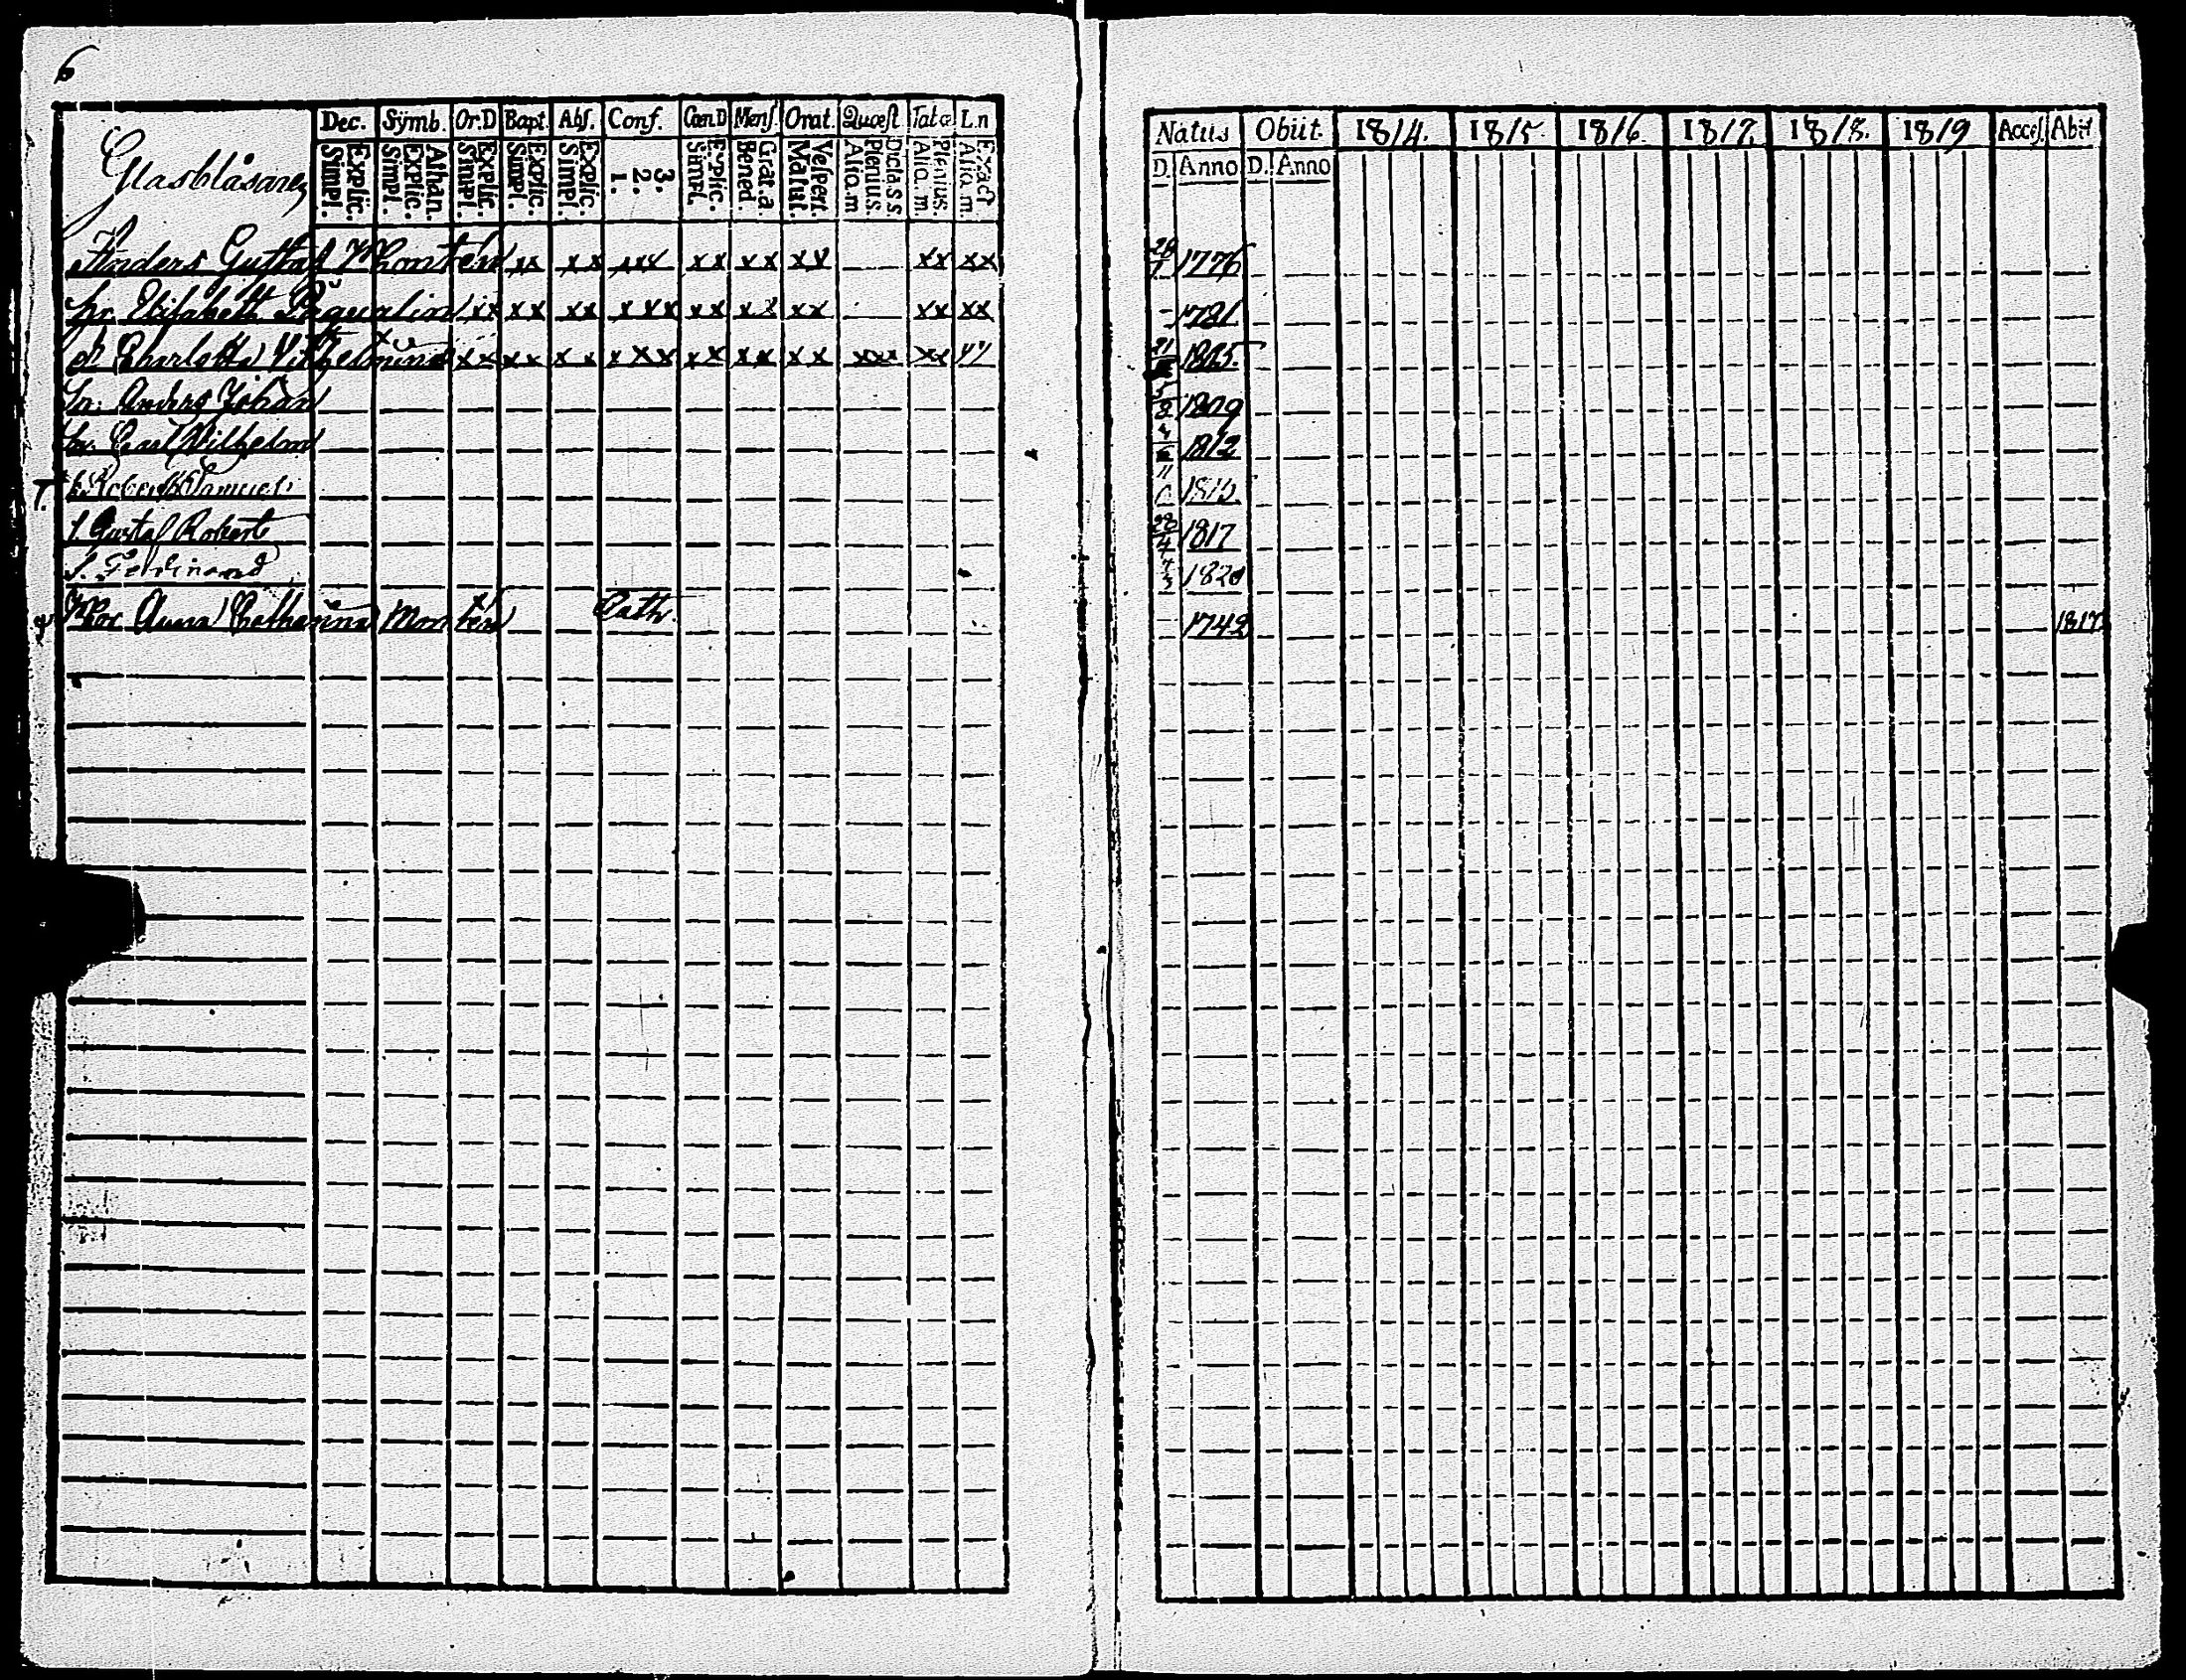 6
Dec. Symb. Or.D Bapt. Abs. Conf. Can D Mens. Orat. Quæst Tabæ L.n
Explic. Simpl. Athan. Explic. Simpl. Explic. Simpl. Explic. Simpl. Explic. Simpl. 3. 2. 1. Explic. Simpl. Grat. a. Bened. Vespert. Matut. Dicta s.s. Plenius. Aliq. m Plenius. Aliq. m. Exact Aliq. m.
Natus Obiit. 1814. 1815. 1816. 1817. 1818. 1819 Access. Abiit
D. Anno D. Anno
Glasblåsaren
Anders Gustaf xx xx xxx xx xx xx xx xx 1776
hr. Elisabeth xx xx xx xxx xx xx xx xx xx 1781
Charlotta Vilhelmina xx xx xx xxx xx xx xx xxx xx
Sn. Anders Johan 5/8 1809
Sn. Carl Wilhelm 1812
T. Robert Samuel 11
S. Gustaf Robert 28/4 1817
S. Ferdinand 7/3 1820
Anna Catharina Cath. 1742 1817